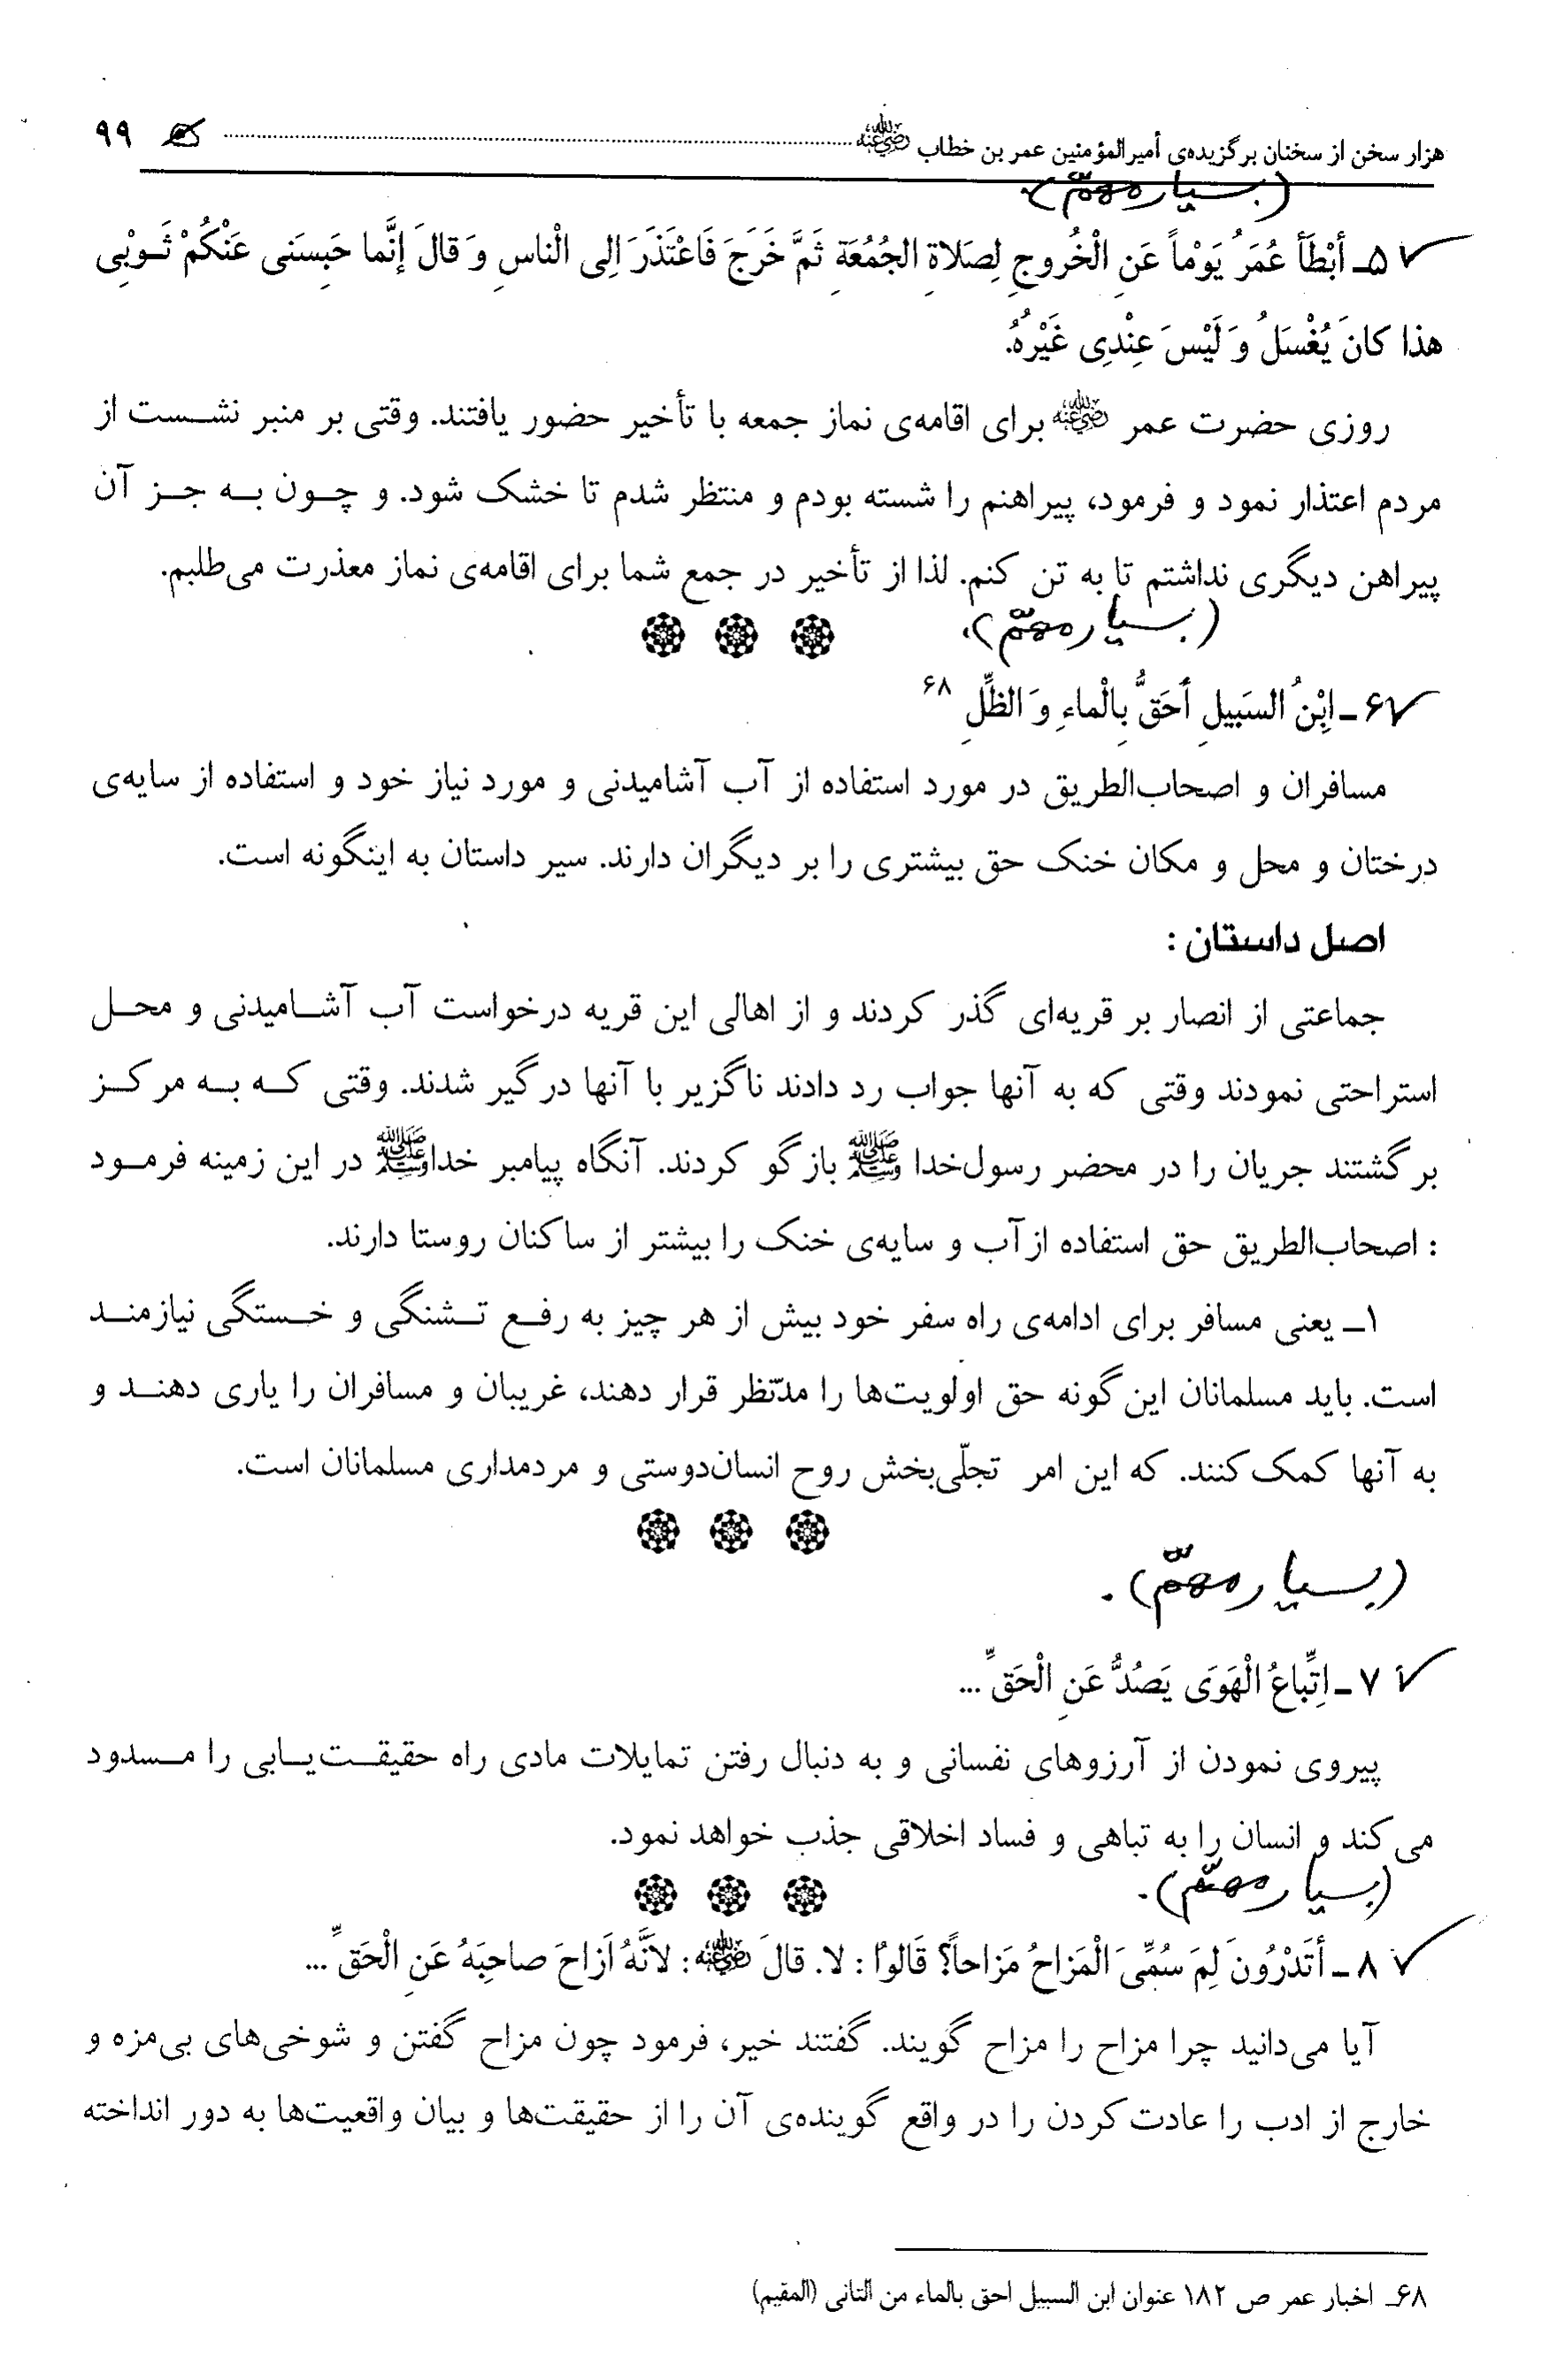 هزار سخن از سخنان برگزیده‌ی أمیرالمؤمنین عمر بن خطاب رضي الله عنه ۹۹
(بسیار مهمّ).
۵ـ أبْطَأ عُمَرُ یَوْماً عَنِ الْخُروجِ لِصَلاةِ الجُمُعَةِ ثَمَّ خَرَجَ فَاعْتَذَرَ اِلی الْناسِ وَ قالَ إنَّما حَبِسَنی عَنْکُمْ ثَـوْبْی
هذا کانَ یُغْسَلُ وَ لَیْسَ عِنْدِی غَیْرُهُ.
روزی حضرت عمر رضي الله عنه برای اقامه‌ی نماز جمعه با تأخیر حضور یافتند. وقتی بر منبر نشـست از
مردم اعتذار نمود و فرمود، پیراهنم را شسته بودم و منتظر شدم تا خشک شود. و چـون بـه جـز آن
پیراهن دیگری نداشتم تا به تن کنم. لذا از تأخیر در جمع شما برای اقامه‌ی نماز معذرت می‌طلبم.
(بسیار مهمّ).
۶ـ اِبْنُ السَبیلِ أحَقُّ بِالْماءِ وَ الظِّلِ ۶۸
مسافران و اصحاب‌الطریق در مورد استفاده از آب آشامیدنی و مورد نیاز خود و استفاده از سایه‌ی
درختان و محل و مکان خنک حق بیشتری را بر دیگران دارند. سیر داستان به اینگونه است.
اصل داستان :
جماعتی از انصار بر قریه‌ای گذر کردند و از اهالی این قریه درخواست آب آشـامیدنی و محـل
استراحتی نمودند وقتی که به آنها جواب رد دادند ناگزیر با آنها درگیر شدند. وقتی کـه بـه مرکـز
برگشتند جریان را در محضر رسول‌خدا ﷺ بازگو کردند. آنگاه پیامبر خدا ﷺ در این زمینه فرمـود
: اصحاب‌الطریق حق استفاده از آب و سایه‌ی خنک را بیشتر از ساکنان روستا دارند.
۱ـ یعنی مسافر برای ادامه‌ی راه سفر خود بیش از هر چیز به رفـع تـشنگی و خـستگی نیازمنـد
است. باید مسلمانان این‌گونه حق اولویت‌ها را مدّنظر قرار دهند، غریبان و مسافران را یاری دهنـد و
به آنها کمک کنند. که این امر تجلّی‌بخش روح انسان‌دوستی و مردمداری مسلمانان است.
(بسیار مهمّ).
۷ـ اِتِّباعُ الْهَوَی یَصُدُّ عَنِ الْحَقِّ ...
پیروی نمودن از آرزوهای نفسانی و به دنبال رفتن تمایلات مادی راه حقیقـت‌یـابی را مـسدود
می‌کند و انسان را به تباهی و فساد اخلاقی جذب خواهد نمود.
(بسیار مهمّ).
۸ـ أتَدْرُونَ لِمَ سُمِّیَ الْمَزاحُ مَزاحاً؟ قَالوُا : لا. قالَ رضي الله عنه : لاَنَّهُ اَزاحَ صاحِبَهُ عَنِ الْحَقِّ ...
آیا می‌دانید چرا مزاح را مزاح گویند. گفتند خیر، فرمود چون مزاح گفتن و شوخی‌های بی‌مزه و
خارج از ادب را عادت کردن را در واقع گوینده‌ی آن را از حقیقت‌ها و بیان واقعیت‌ها به دور انداخته
۶۸ـ اخبار عمر ص ۱۸۲ عنوان ابن السبیل احق بالماء من التانی (المقیم)